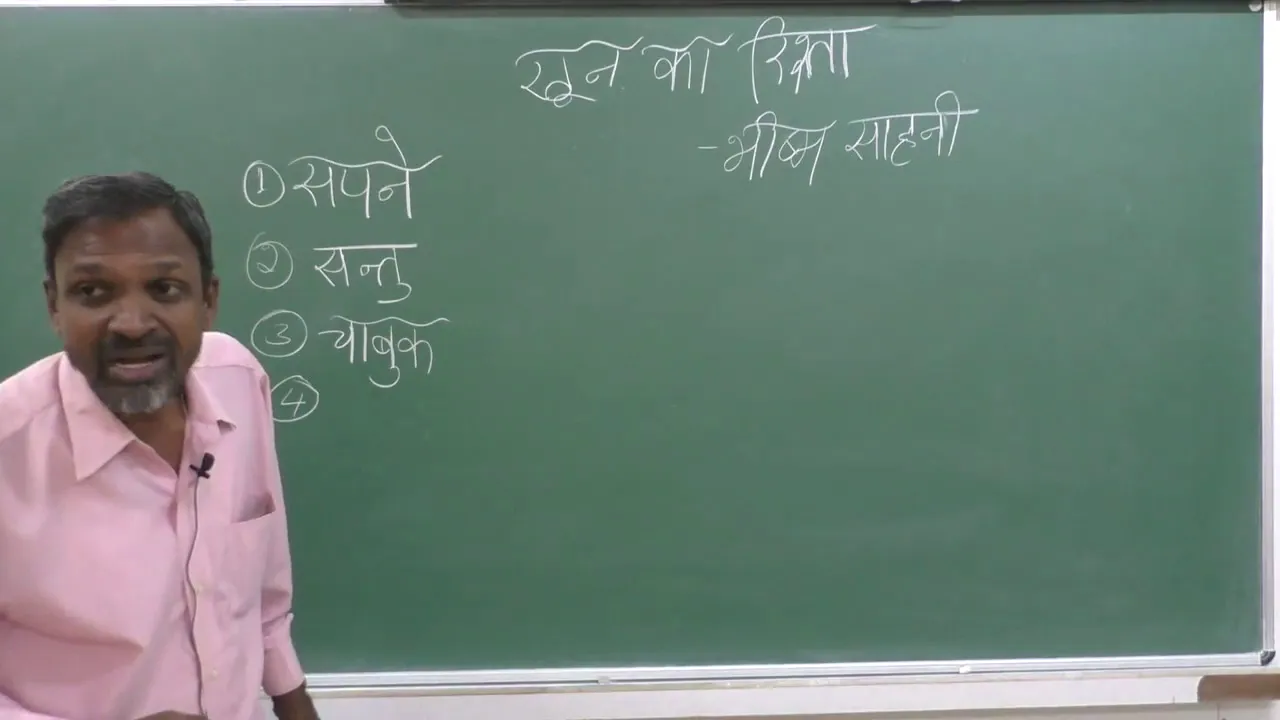 खून का रिश्ता
- भीष्म साहनी
① सपने
② सन्तु
③ चाबुक
④